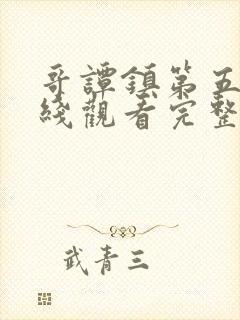 哥譚鎮第五
綫觀看完整
武青三